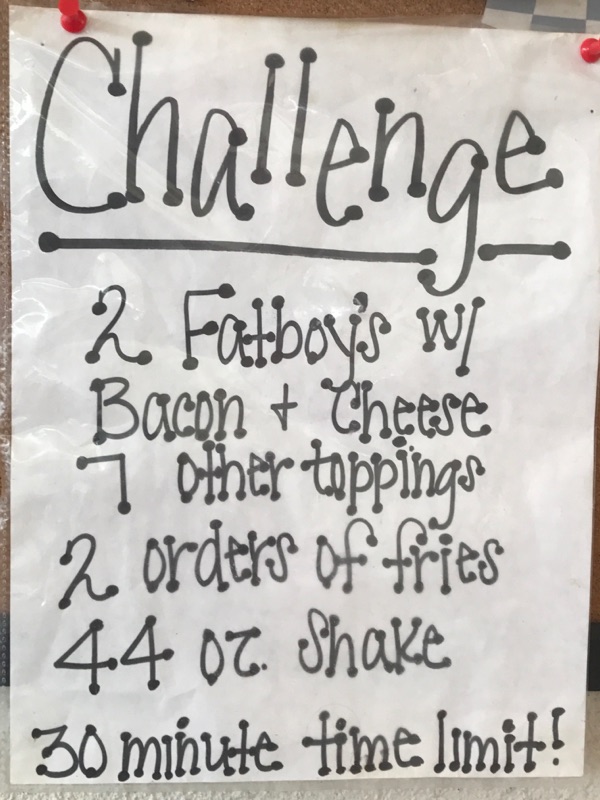 Challenge
2 Fatboy's w/
Bacon + Cheese
7 other toppings
2 orders of fries
44 oz. Shake
30 minute time limit!